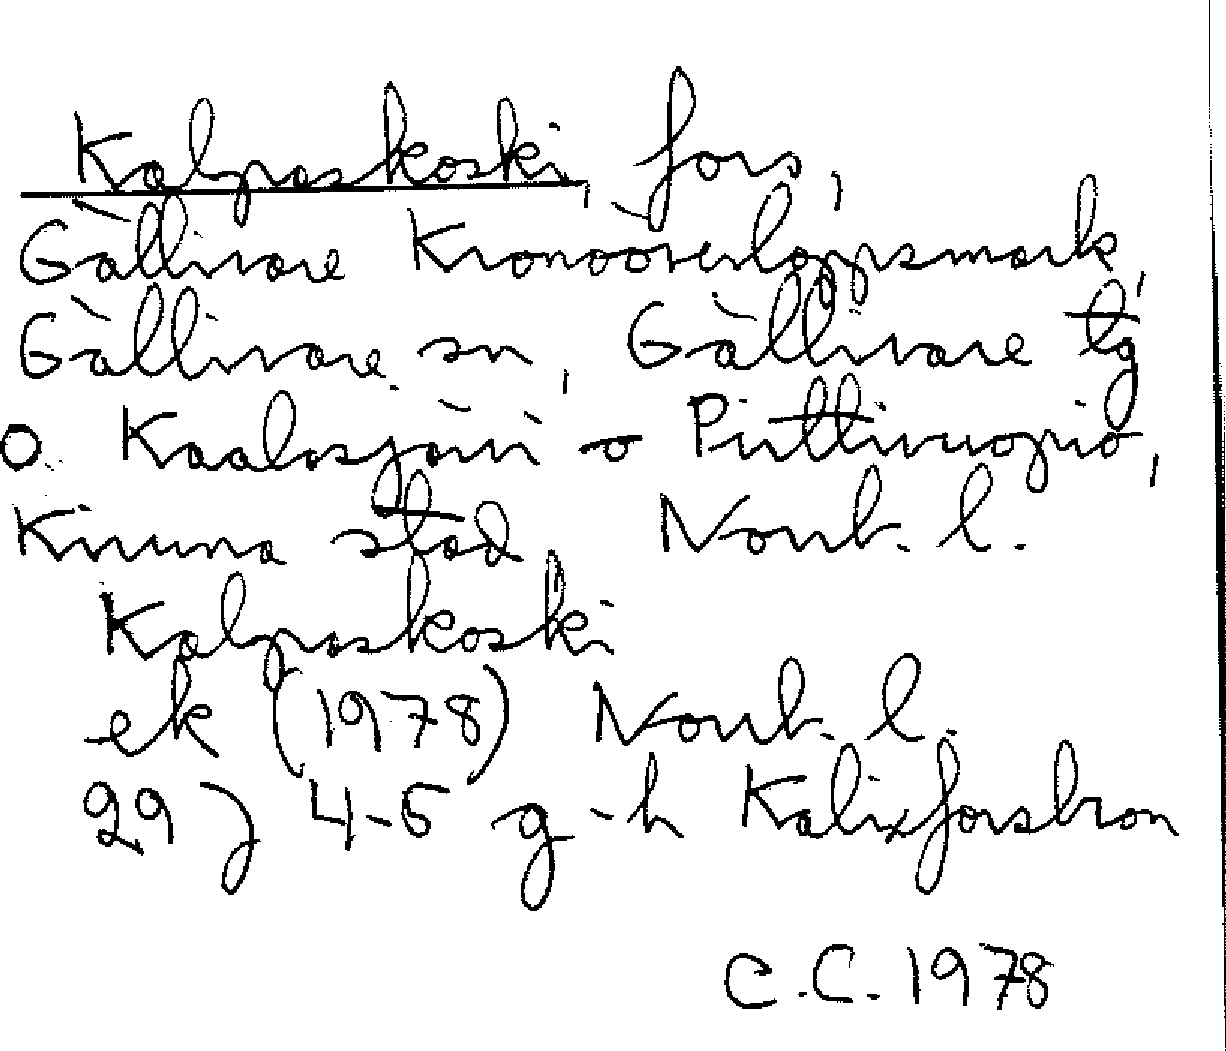 Kalpaskoski, fors,
Gällivare Kronoöverloppsmark,
Gällivare sn, Gällivare tg
o. Kaalasjärvi o Pirttivuopio,
Kiruna stad, Norrb. l.
Kalpaskoski
ek (1978) Norrb. l.
29 J 4-5 g-h Kalixforsbron
C.C. 1978